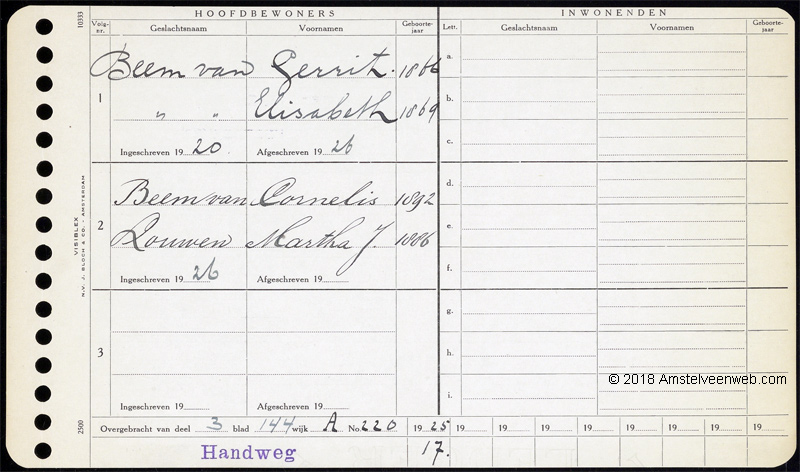 HOOFDBEWONERS INWONENDEN
10333 Volg-nr. Geslachtsnaam Voornamen Geboorte-jaar Lett. Geslachtsnaam Voornamen Geboorte-jaar
Beem van Gerrit. 1866 a.
1 " " Elisabeth 1869 b.
Ingeschreven 19 20 Afgeschreven 19 26 c.
VISIBLEX
N.V. J. BLOCH & CO. - AMSTERDAM
Beem van Cornelis 1892 d.
2 Louwen Martha J. 1886 e.
Ingeschreven 19 26 Afgeschreven 19 f.
g.
3 h.
© 2018 Amstelveenweb.com
i.
Ingeschreven 19 Afgeschreven 19
2500 Overgebracht van deel 3 blad 144 wijk A No. 220 19 25 19 19 19 19 19 19 19 19
Handweg 17.